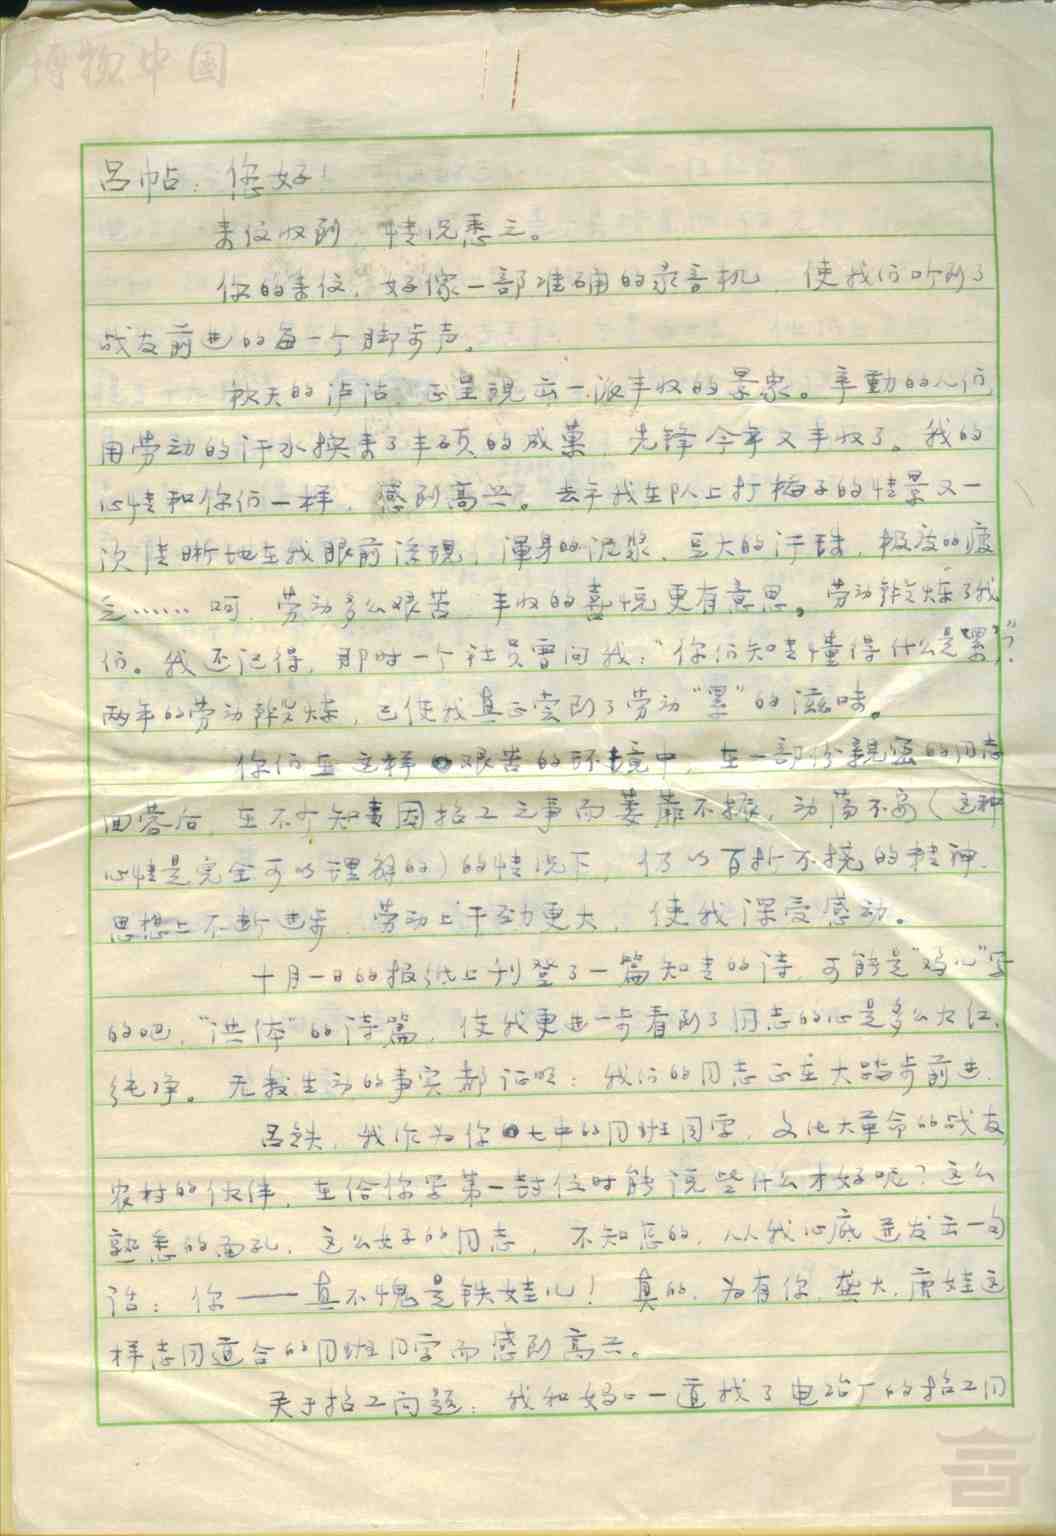 博物中国
吕帖：您好！
来信收到，情况悉之。
你的来信，好像一部准确的录音机，使我们听到了
战友前进的每一个脚步声。
秋天的泸沽，正呈现出一派丰收的景象。辛勤的人们，
用劳动的汗水换来了丰硕的成果，先锋今年又丰收了。我的
心情和你们一样，感到高兴。去年我在队上打梅子的情景又一
次清晰地在我眼前浮现，浑身的泥浆，豆大的汗珠，极度的疲
乏……呵，劳动多么艰苦，丰收的喜悦更有意思。劳动锻炼了我
们。我还记得，那时一个社员曾问我：“你们知青懂得什么是‘累’？”
两年的劳动锻炼，已使我真正尝到了劳动“累”的滋味。
你们在这样艰苦的环境中，在一部份亲密的同志
回蓉后，在不少知青因招工之事而萎靡不振，动荡不安（这种
心情是完全可以理解的）的情况下，仍以百折不挠的精神，
思想上不断进步，劳动上干劲更大，使我深受感动。
十月一日的报纸上刊登了一篇知青的诗，可能是“鸡心”写
的吧，“洪体”的诗篇，使我更进一步看到了同志的心是多么火红、
纯净。无数生动的事实都证明：我们的同志正在大踏步前进。
吕铁，我作为你七中的同班同学，文化大革命的战友
农村的伙伴，在给你写第一封信时能说些什么才好呢？这么
熟悉的面孔，这么好的同志，不知怎的，从我心底迸发出一句
话：你——真不愧是铁娃儿！真的，为有你，龚大，唐娃这
样志同道合的同班同学而感到高兴。
关于招工问题：我和妈一道找了电珀厂的招工同